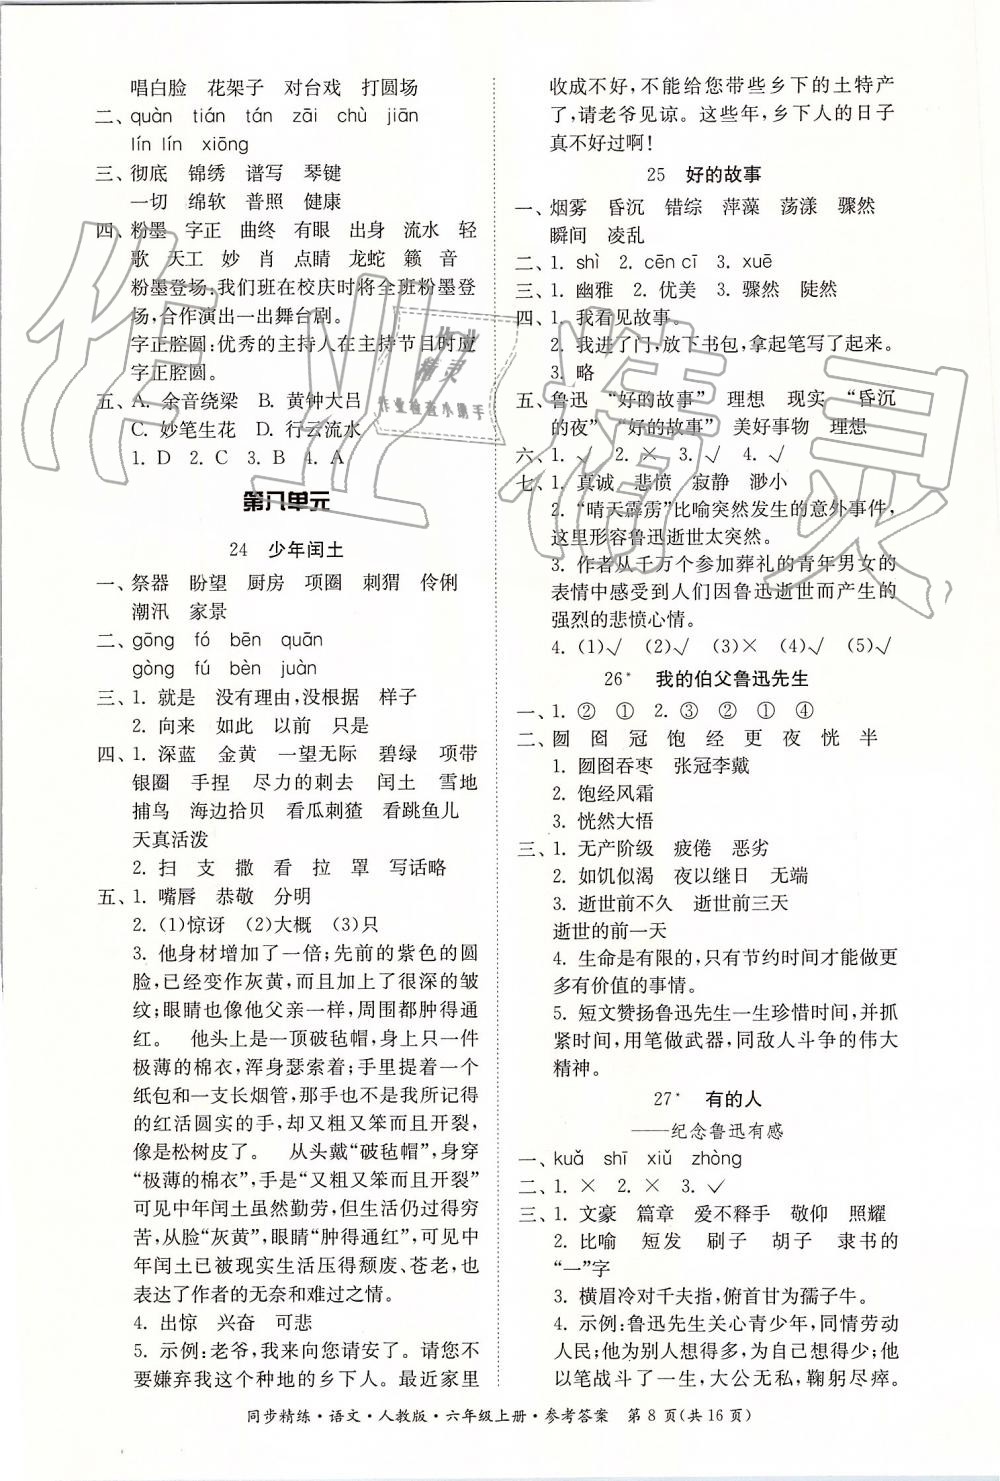 唱白脸 花架子 对台戏 打圆场
二、quàn tián tán zāi chù jiān
lín lín xiōng
三、彻底 锦绣 谱写 琴键
一切 绵软 普照 健康
四、粉墨 字正 曲终 有眼 出身 流水 轻
歌 天工 妙 肖 点睛 龙蛇 籁 音
粉墨登场:我们班在校庆时将全班粉墨登
场,合作演出一出舞台剧。
字正腔圆:优秀的主持人在主持节目时应
字正腔圆。
五、A. 余音绕梁 B. 黄钟大吕
C. 妙笔生花 D. 行云流水
1. D 2. C 3. B 4. A
第八单元
24 少年闰土
一、祭器 盼望 厨房 项圈 刺猬 伶俐
潮汛 家景
二、gōng fó bēn quān
gòng fú bèn juàn
三、1. 就是 没有理由,没根据 样子
2. 向来 如此 以前 只是
四、1. 深蓝 金黄 一望无际 碧绿 项带
银圈 手捏 尽力的刺去 闰土 雪地
捕鸟 海边拾贝 看瓜刺猹 看跳鱼儿
天真活泼
2. 扫 支 撒 看 拉 罩 写话略
五、1. 嘴唇 恭敬 分明
2. (1)惊讶 (2)大概 (3)只
3. 他身材增加了一倍;先前的紫色的圆
脸,已经变作灰黄,而且加上了很深的皱
纹;眼睛也像他父亲一样,周围都肿得通
红。 他头上是一顶破毡帽,身上只一件
极薄的棉衣,浑身瑟索着;手里提着一个
纸包和一支长烟管,那手也不是我所记得
的红活圆实的手,却又粗又笨而且开裂,
像是松树皮了。 从头戴“破毡帽”,身穿
“极薄的棉衣”,手是“又粗又笨而且开裂”
可见中年闰土虽然勤劳,但生活仍过得穷
苦,从脸“灰黄”,眼睛“肿得通红”,可见中
年闰土已被现实生活压得颓废、苍老,也
表达了作者的无奈和难过之情。
4. 出惊 兴奋 可悲
5. 示例:老爷,我来向您请安了。请您不
要嫌弃我这个种地的乡下人。最近家里
收成不好,不能给您带些乡下的土特产
了,请老爷见谅。这些年,乡下人的日子
真不好过啊!
25 好的故事
一、烟雾 昏沉 错综 萍藻 荡漾 骤然
瞬间 凌乱
二、1. shì 2. cēn cī 3. xuē
三、1. 幽雅 2. 优美 3. 骤然 陡然
四、1. 我看见故事。
2. 我进了门,放下书包,拿起笔写了起来。
3. 略
五、鲁迅 “好的故事” 理想 现实 “昏沉
的夜” “好的故事” 美好事物 理想
六、1. √ 2. × 3. √ 4. √
七、1. 真诚 悲愤 寂静 渺小
2. “晴天霹雳”比喻突然发生的意外事件,
这里形容鲁迅逝世太突然。
3. 作者从千万个参加葬礼的青年男女的
表情中感受到人们因鲁迅逝世而产生的
强烈的悲愤心情。
4. (1)√ (2)√ (3)× (4)√ (5)√
26* 我的伯父鲁迅先生
一、1. ② ① 2. ③ ② ① ④
二、囫 囵 冠 饱 经 更 夜 恍 半
1. 囫囵吞枣 张冠李戴
2. 饱经风霜
3. 恍然大悟
三、1. 无产阶级 疲倦 恶劣
2. 如饥似渴 夜以继日 无端
3. 逝世前不久 逝世前三天
逝世的前一天
4. 生命是有限的,只有节约时间才能做更
多有价值的事情。
5. 短文赞扬鲁迅先生一生珍惜时间,并抓
紧时间,用笔做武器,同敌人斗争的伟大
精神。
27* 有的人
——纪念鲁迅有感
一、kuǎ shī xiǔ zhòng
二、1. × 2. × 3. √
三、1. 文豪 篇章 爱不释手 敬仰 照耀
2. 比喻 短发 刷子 胡子 隶书的
“一”字
3. 横眉冷对千夫指,俯首甘为孺子牛。
4. 示例:鲁迅先生关心青少年,同情劳动
人民;他为别人想得多,为自己想得少;他
以笔战斗了一生、大公无私,鞠躬尽瘁。
同步精练·语文·人教版·六年级上册·参考答案 第 8 页(共 16 页)
作业精灵
作业
精灵
作业检查小助手